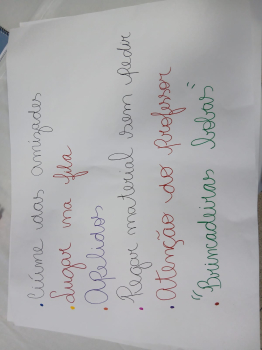 • Ciúme das amizades
• Lugar na fila
• Apelidos
• Pegar material sem pedir
• Atenção do professor
• "Brincadeiras bobas"